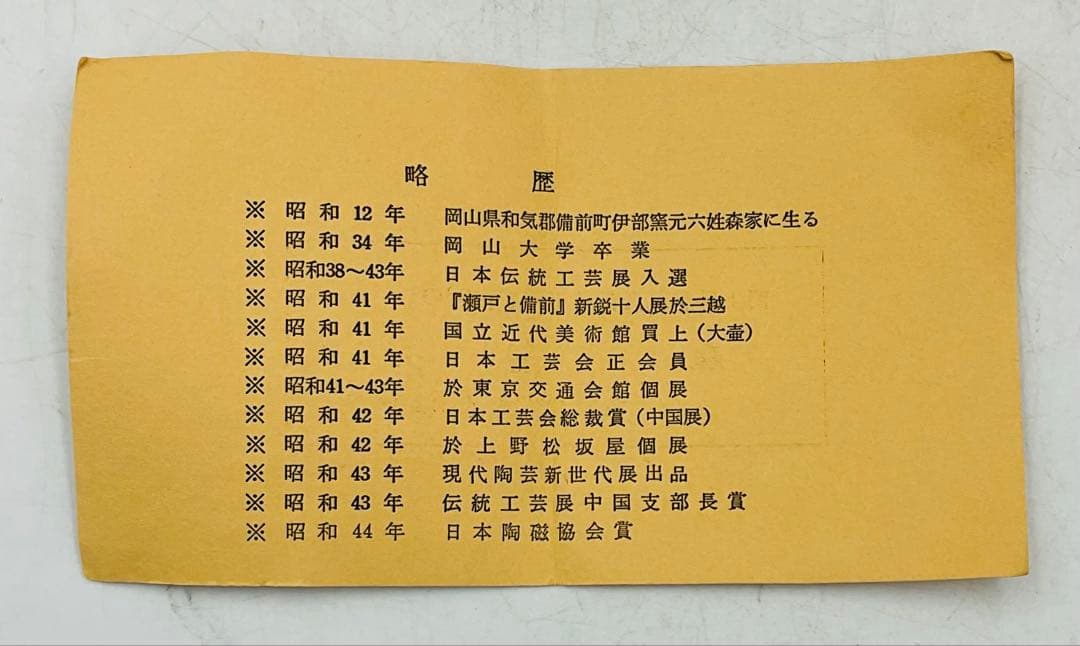 略歴
※ 昭和12年 岡山県和気郡備前町伊部窯元六姓森家に生る
※ 昭和34年 岡山大学卒業
※ 昭和38〜43年 日本伝統工芸展入選
※ 昭和41年 『瀬戸と備前』新鋭十人展於三越
※ 昭和41年 国立近代美術館買上(大壷)
※ 昭和41年 日本工芸会正会員
※ 昭和41〜43年 於東京交通会館個展
※ 昭和42年 日本工芸会総裁賞(中国展)
※ 昭和42年 於上野松坂屋個展
※ 昭和43年 現代陶芸新世代展出品
※ 昭和43年 伝統工芸展中国支部長賞
※ 昭和44年 日本陶磁協会賞